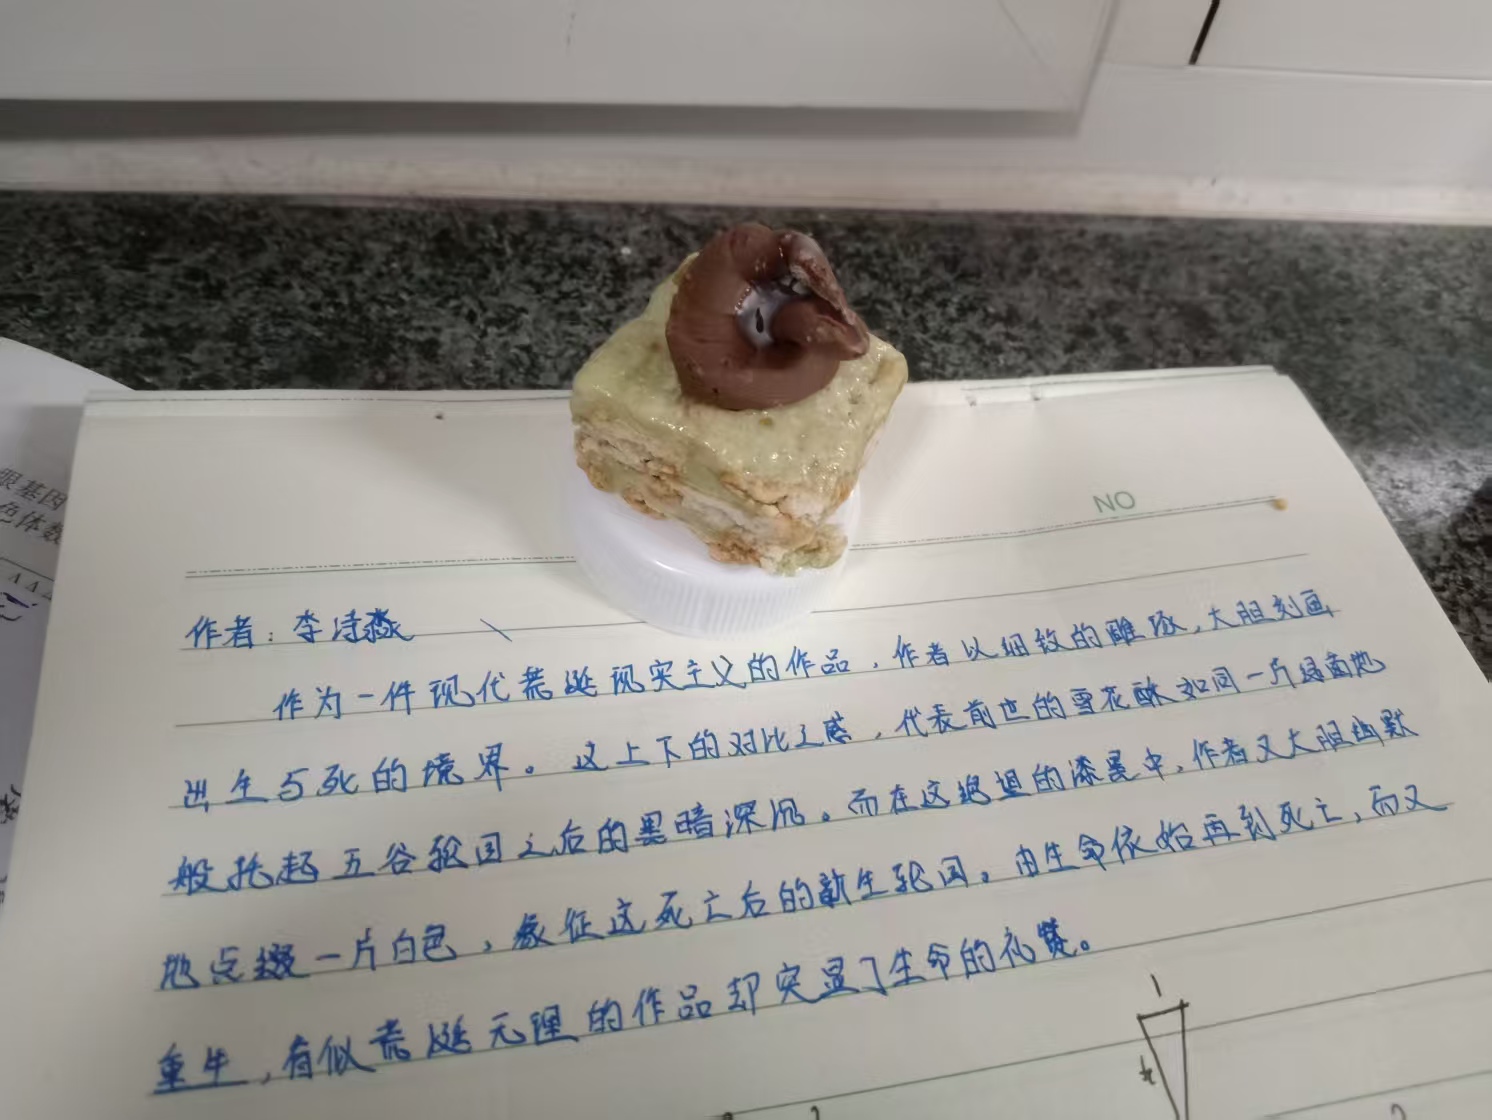 NO
作者：李诗淼
作为一件现代荒诞现实主义的作品，作者以细致的雕琢，大胆刻画
出生与死的境界。这上下的对比之感，代表前世的雪花酥如同一片绿茵地
般托起五谷轮回之后的黑暗深沉。而在这绝望的漆黑中，作者又大胆幽默
地点缀一片白色，象征这死亡后的新生轮回。由生命依始再到死亡，而又
重生，看似荒诞无理的作品却突显了生命的礼赞。
眼基因
色体数
1